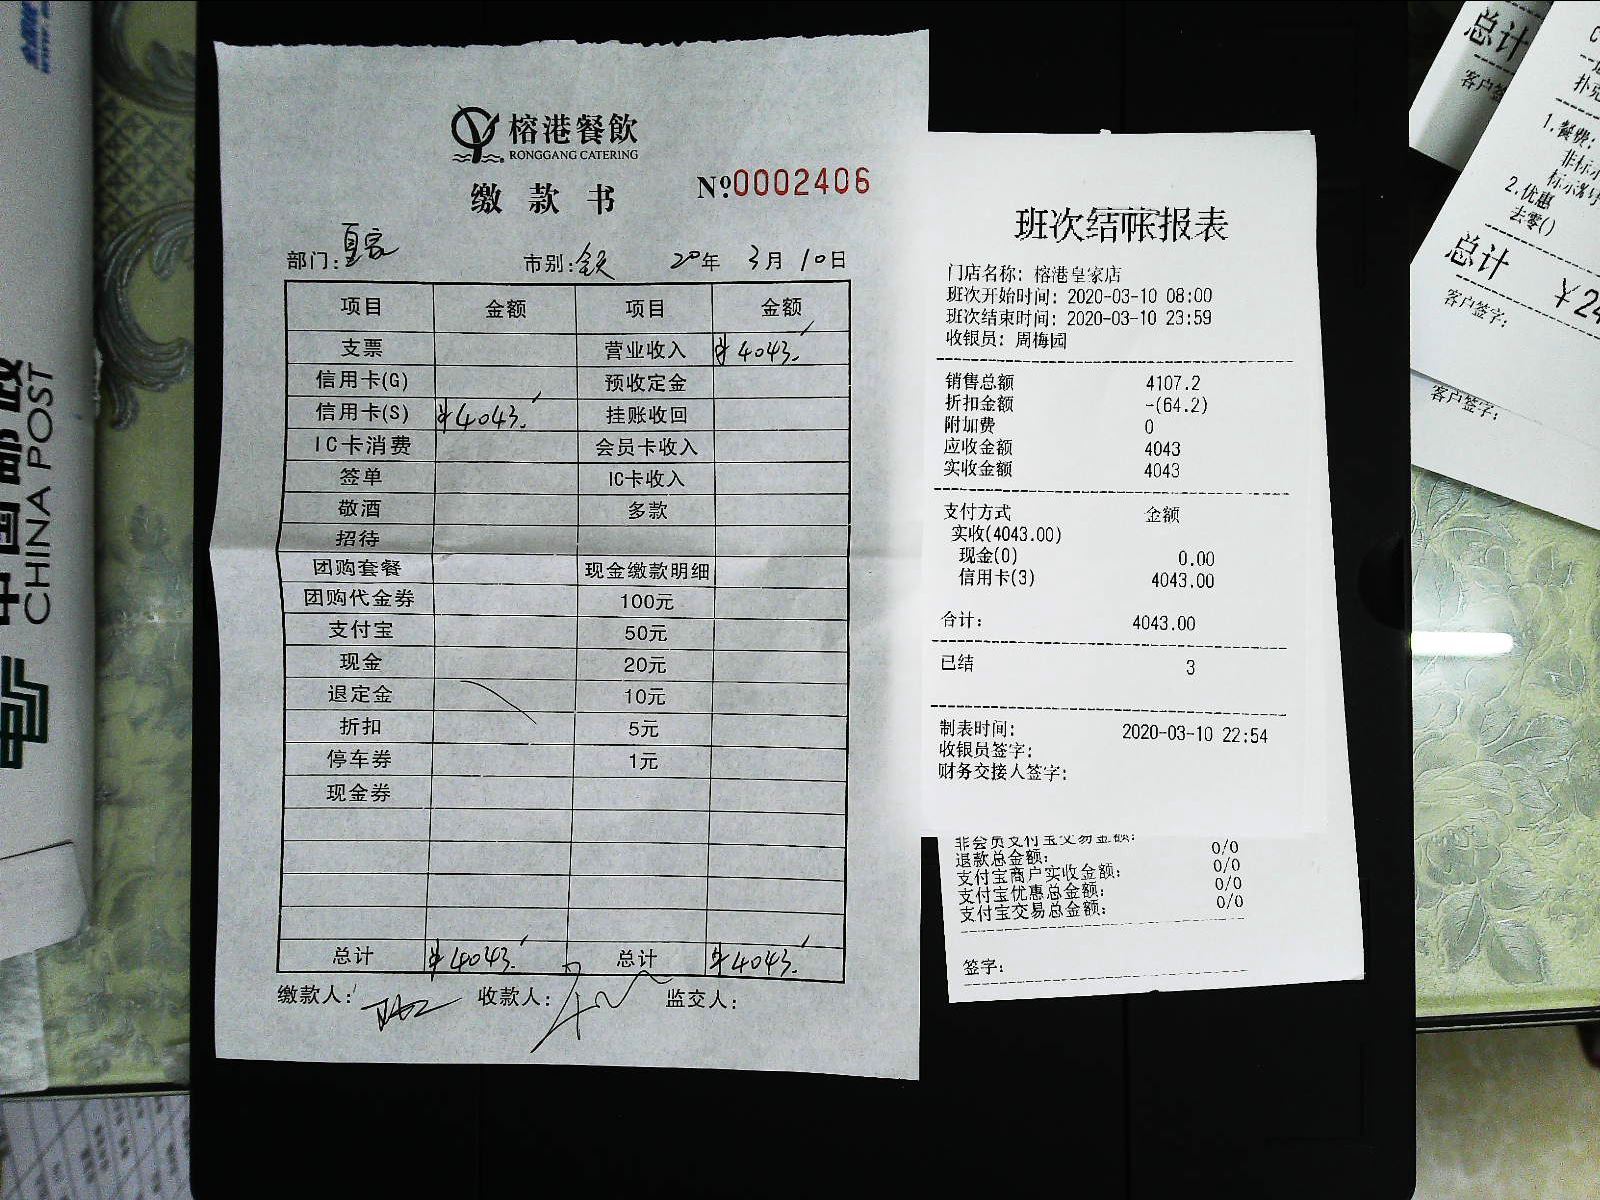 榕港餐飲
RONGGANG CATERING
缴款书
Nº0002406
部门:皇家 市别:全天 20年 3月 10日
项目 金额 项目 金额
支票 营业收入 ¥4043.
信用卡(G) 预收定金
信用卡(S) ¥4043. 挂账收回
IC卡消费 会员卡收入
签单 IC卡收入
敬酒 多款
招待
团购套餐 现金缴款明细
团购代金券 100元
支付宝 50元
现金 20元
退定金 10元
折扣 5元
停车券 1元
现金券
总计 ¥4043. 总计 ¥4043.
缴款人: 收款人: 监交人:
班次结帐报表
门店名称: 榕港皇家店
班次开始时间: 2020-03-10 08:00
班次结束时间: 2020-03-10 23:59
收银员: 周梅园
销售总额 4107.2
折扣金额 -(64.2)
附加费 0
应收金额 4043
实收金额 4043
支付方式 金额
实收(4043.00)
现金(0) 0.00
信用卡(3) 4043.00
合计: 4043.00
已结 3
制表时间: 2020-03-10 22:54
收银员签字:
财务交接人签字:
非会员支付宝交易金额: 0/0
退款总金额: 0/0
支付宝商户实收金额: 0/0
支付宝优惠总金额: 0/0
支付宝交易总金额:
签字:
总计
客户签
1.餐费:
非标示
2.优惠
去零()
总计 ¥24
客户签字:
客户签字:
中国邮政
CHINA POST